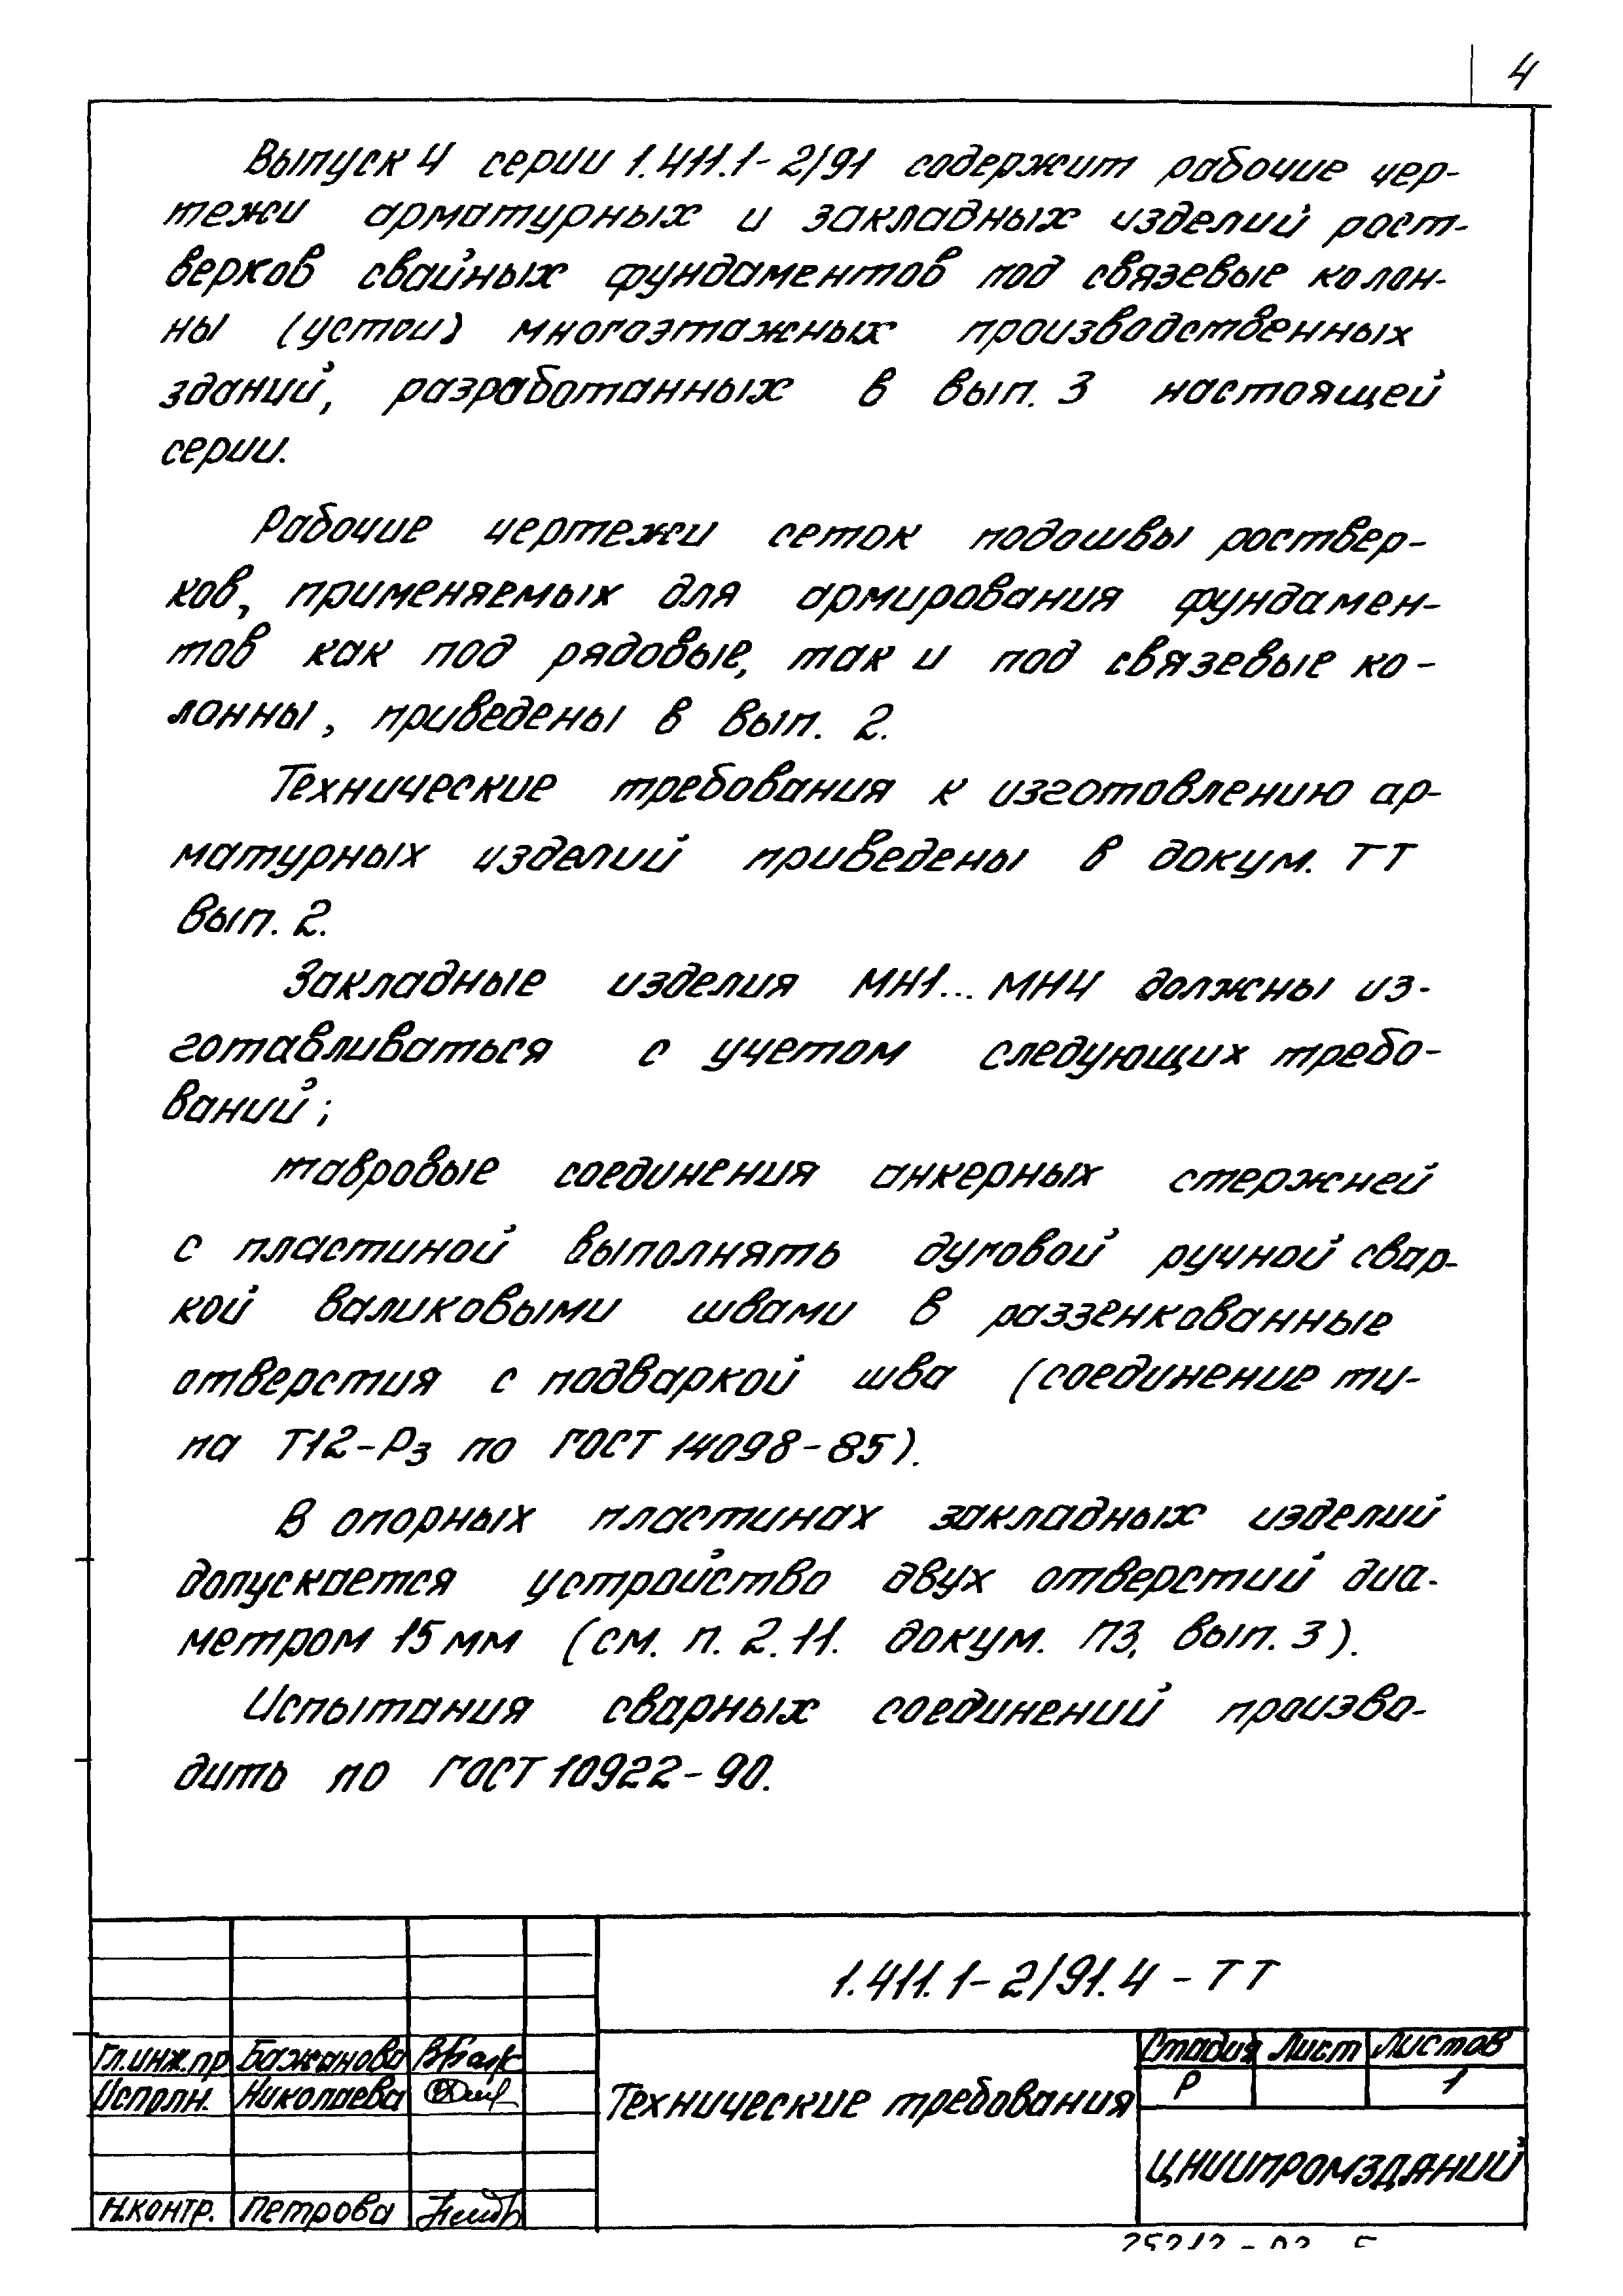 4
Выпуск 4 серии 1.411.1-2/91 содержит рабочие чер-
тежи арматурных и закладных изделий рост-
верков свайных фундаментов под связевые колон-
ны (устои) многоэтажных производственных
зданий, разработанных в вып. 3 настоящей
серии.
Рабочие чертежи сеток подошвы роствер-
ков, применяемых для армирования фундамен-
тов как под рядовые, так и под связевые ко-
лонны, приведены в вып. 2.
Технические требования к изготовлению ар-
матурных изделий приведены в докум. ТТ
вып. 2.
Закладные изделия МН1... МН4 должны из-
готавливаться с учетом следующих требо-
ваний;
тавровые соединения анкерных стержней
с пластиной выполнять дуговой ручной свар-
кой валиковыми швами в раззенкованные
отверстия с подваркой шва (соединение ти-
па Т12-Рз по ГОСТ 14098-85).
В опорных пластинах закладных изделий
допускается устройство двух отверстий диа-
метром 15 мм (см. п. 2.11. докум. ПЗ, вып. 3).
Испытания сварных соединений произво-
дить по ГОСТ 10922-90.
1.411.1-2/91.4-ТТ
Гл.инж.пр Бажанова
Исполн. Николаева
Н.контр. Петрова
Технические требования
Стадия Лист Листов
Р 1
ЦНИИПРОМЗДАНИЙ